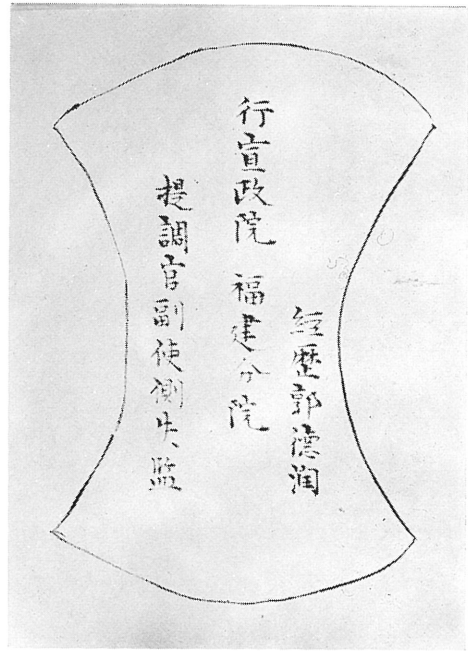 経歴郭德润
行宣政院 福建分院
提調官副使側失監